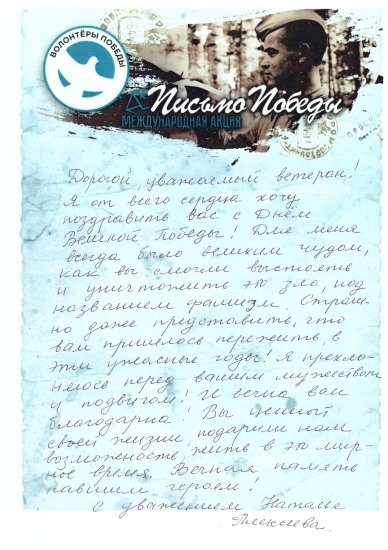 ВОЛОНТЁРЫ ПОБЕДЫ
Письмо Победы
МЕЖДУНАРОДНАЯ АКЦИЯ
Дорогой, уважаемый ветеран!
Я от всего сердца хочу
поздравить вас с Днём
Великой Победы! Для меня
всегда было великим чудом,
как вы смогли выстоять
и уничтожить это зло, под
названием фашизм. Страш-
но даже представить, что
вам пришлось пережить в
эти ужасные годы! Я прекло-
няюсь перед вашим мужеством
и подвигом! И вечно вам
благодарна! Вы ценой
своей жизни подарили нам
возможность жить в это мир-
ное время. Вечная память
павшим героям!
С уважением Наталья
Алексеева.